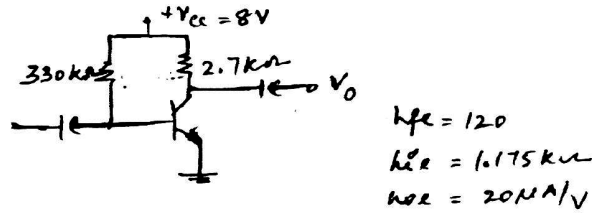 +Vcc = 8V
330kΩ
2.7kΩ
Vo
hfe = 120
hie = 1.175kΩ
hoe = 20μA/V